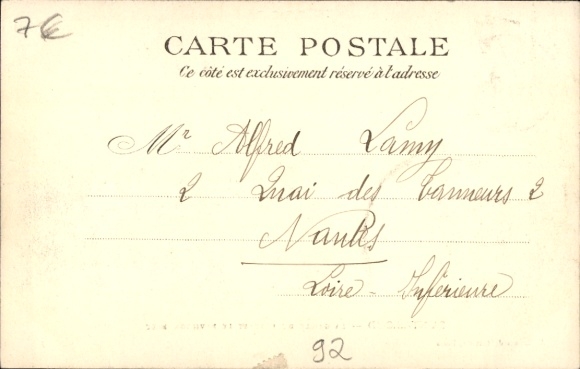 7€
CARTE POSTALE
Ce côté est exclusivement réservé à l'adresse
Mr Alfred Lamy
2 Quai des Tanneurs 2
Nantes
Loire-Inférieure
92